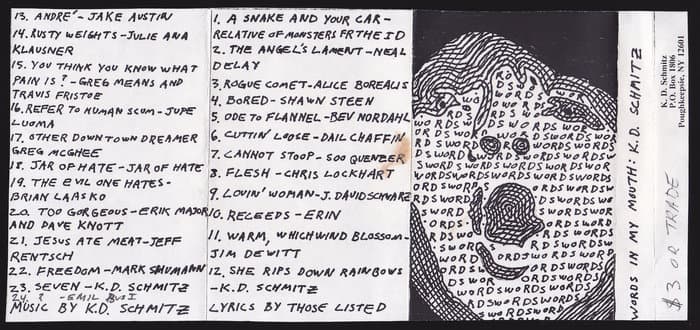 13. ANDRÉ - JAKE AUSTIN
14. RUSTY WEIGHTS - JULIE ANA
KLAUSNER
15. YOU THINK YOU KNOW WHAT
PAIN IS? - GREG MEANS AND
TRAVIS FRISTOE
16. REFER TO HUMAN SCUM - JUPE
LUOMA
17. OTHER DOWNTOWN DREAMER
GREG McGHEE
18. JAR OF HATE - JAR OF HATE
19. THE EVIL ONE HATES -
BRIAN LAASKO
20. TOO GORGEOUS - ERIK MAJOR
AND DAVE KNOTT
21. JESUS ATE MEAT - JEFF
RENTSCH
22. FREEDOM - MARK SHUMANN
23. SEVEN - K.D. SCHMITZ
24. ? - EMIL BUSI
MUSIC BY K.D. SCHMITZ
1. A SNAKE AND YOUR CAR -
RELATIVE OF MONSTERS FR THE ID
2. THE ANGEL'S LAMENT - NEAL
DELAY
3. ROGUE COMET - ALICE BOREALIS
4. BORED - SHAWN STEEN
5. ODE TO FLANNEL - BEV NORDAHL
6. CUTTIN' LOOSE - DAIL CHAFFIN
7. CANNOT STOOP - SOO QUENZER
8. FLESH - CHRIS LOCKHART
9. LOVIN' WOMAN - J. DAVID SCHWARZ
10. RECEEDS - ERIN
11. WARM, WHICHWIND BLOSSOM -
JIM DEWITT
12. SHE RIPS DOWN RAINBOWS
- K.D. SCHMITZ
LYRICS BY THOSE LISTED
WORDS IN MY MOUTH: K.D. SCHMITZ
K. D. Schmitz
P.O. Box 1806
Poughkeepsie, NY 12601
$3 OR TRADE